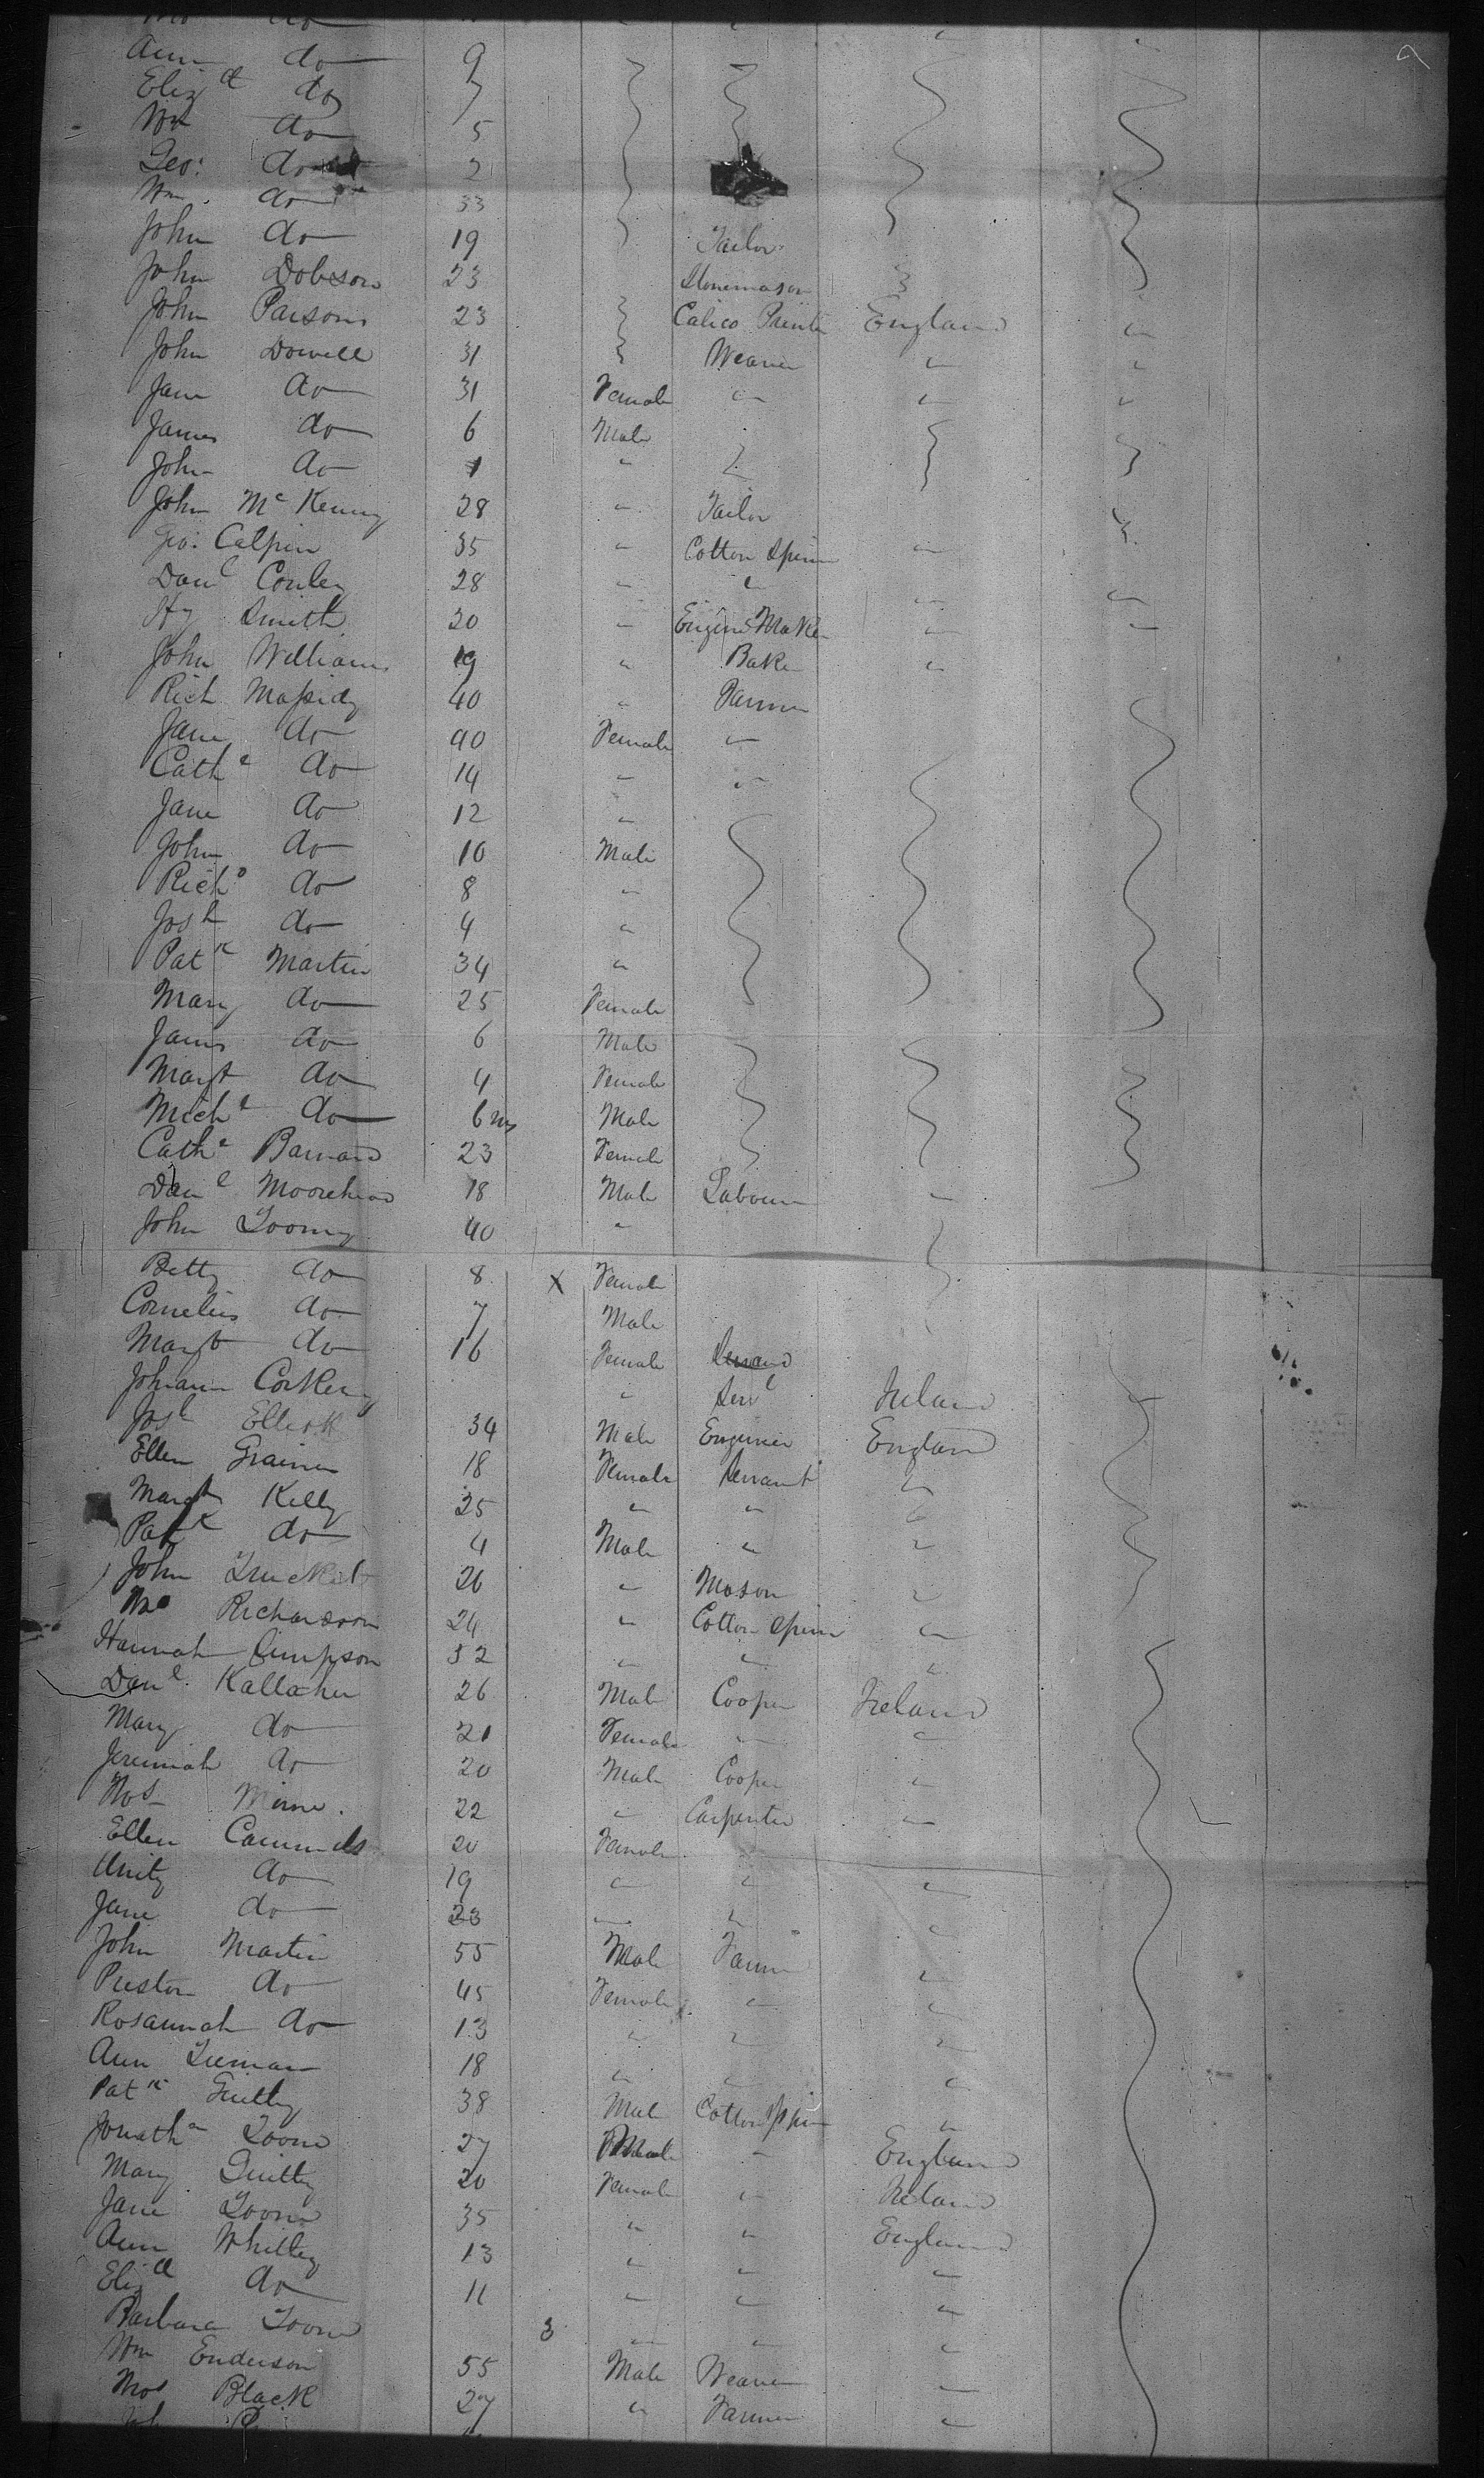 Ann do 9
Eliz do 7
Wm do 5
Geo: do 2
Wm do 33
John do 19 Tailor
John Dobson 23 Stonemason
John Parsons 23 Calico Printer England
John Dowell 31 Weaver "
Jane do 31 Female " "
James do 6 Male
John do 1 "
John McKenny 28 " Tailor
Geo: Calpin 35 " Cotton Spinn "
Danl Conley 28 " " "
Hy Smith 30 " Engine Maker "
John Williams 19 " Baker "
Rich 40 " Farmer
Jane do 40 Female "
Cathe do 14 " "
Jane do 12 "
John do 10 Male
Richd do 8 "
Josh do 4 "
Patk Martin 34 "
Mary do 25 Female
James do 6 Male
Margt do 4 Female
Michl do 6 ms Male
Cathe Barnard 23 Female
Danl Moorehead 18 Male Labourer "
John Toomy 40 "
Betty do 8 X Female
Cornelius do 7 Male
Margt do 16 Female
Johann Corkery " Servt Ireland
Josh Elliott 34 Male Engineer England
Ellen Grainer 18 Female Servant "
Margt Kelly 25 " " "
Patk do 4 Male " "
John 26 " Mason "
Richardson 24 " Cotton Spinn "
Hannah Simpson 52 " " "
Danl Kallaher 26 Male Cooper Ireland
Mary do 21 Female " "
Jeremiah do 20 Male Cooper "
22 " Carpenter "
Ellen 20 Female
Unity do 19 " " "
Jane do 23 " " "
John Martin 55 Male Farmer "
Preston do 45 Female " "
Rosannah do 13 " " "
Ann 18 " " "
Patk 38 Male Cotton Spin "
Jonathn 27 Male " England
Mary 20 Female " Ireland
Jane 35 " " England
Ann Whitley 13 " " "
Eliz do 11 " " "
Barbara 3 " " "
Wm Enderson 55 Male Weaver "
Black 27 " Farmer "